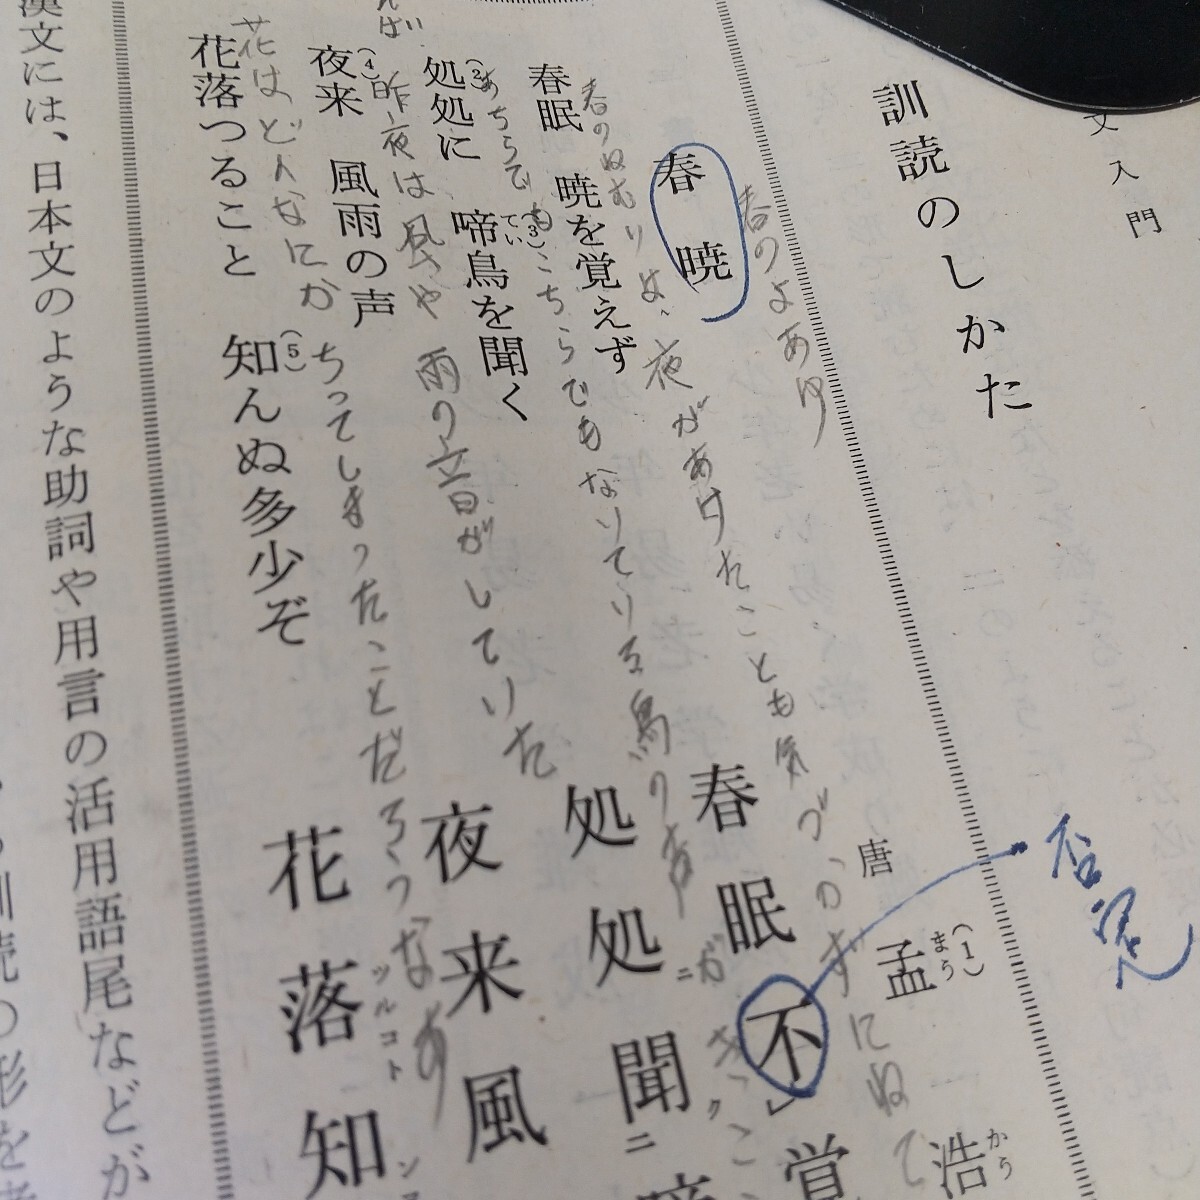 入門
訓読のしかた
春のよあけ
春暁
唐 孟(1)まう 浩かう
否定
春眠不レ覚
春のねむりは、夜があけたことも気づかずにねて
春眠 暁を覚えず
処処聞
あちらでもこちらでもないている鳥の声がきこ
処処に(2) 啼てい鳥(3)を聞く
夜来風
昨夜は風や雨の音がしていた
夜来(4) 風雨の声
花落ツルコト知ン
花はどんなにかちってしまったことだろうなあ
花落つること 知(5)んぬ多少ぞ
漢文には、日本文のような助詞や用言の活用語尾などが